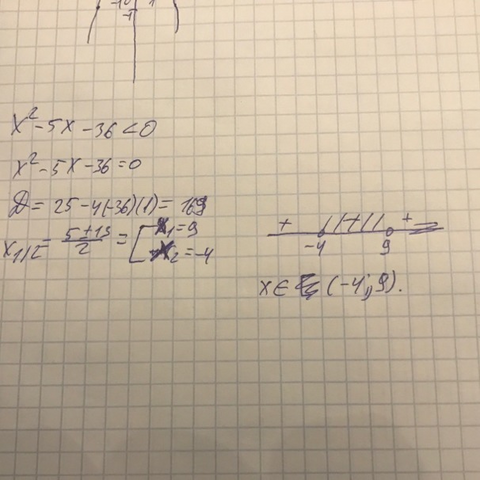 x²-5x-36<0
x²-5x-36=0
D=25-4(-36)(1)=169
x1/2=5±13/2=[x1=9
x2=-4
+ + 
-4 9
x∈(-4;9).